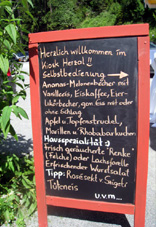 Herzlich willkommen im
Kiosk Herzal :)
Selbstbedienung →
Ananas-Melonenbecher mit
Vanilleeis, Eiskaffee, Eier-
likörbecher, gern Eis mit oder
ohne Schlag
Apfel u. Topfenstrudel,
Marillen u. Rhabarbarkuchen
Hausspezialität :)
frisch geräucherte Renke
(Felche) oder Lachsforelle
Erfrischender Wurstsalat
Tipp: Rosésekt v. Stigel
u.v.m...